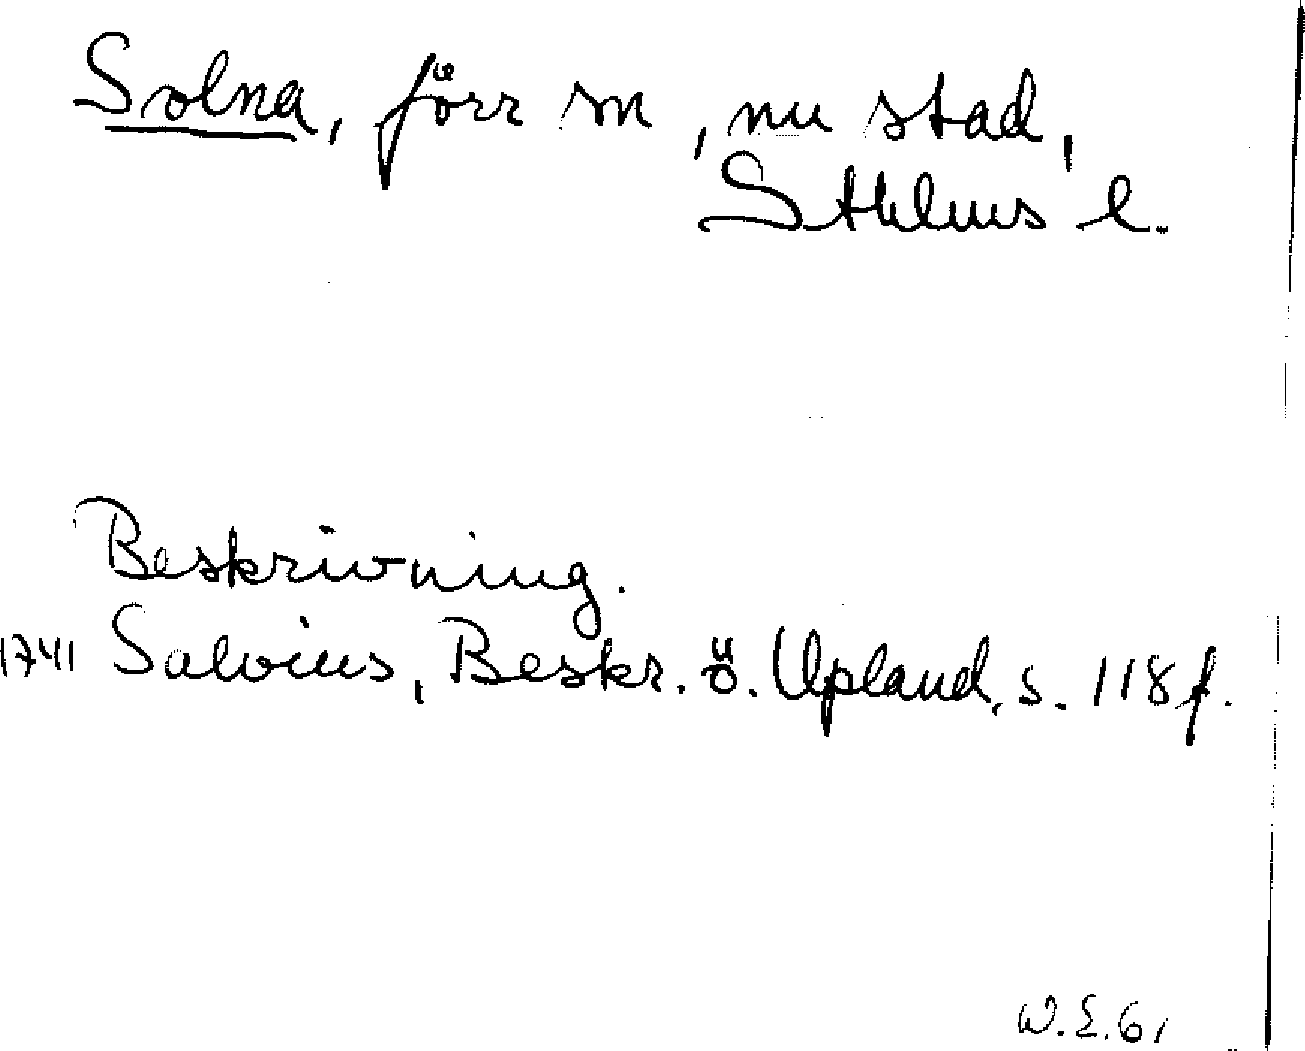 Solna, förr sn, nu stad,
Sthlms l.
Beskrivning.
1741 Salvius, Beskr. ö. Upland, s. 118 f.
W.E. 61